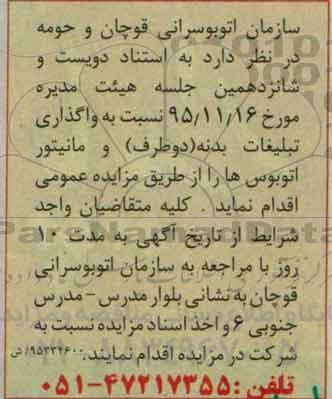 سازمان اتوبوسرانی قوچان و حومه
در نظر دارد به استناد دویست و
شانزدهمین جلسه هیئت مدیره
مورخ ۹۵/۱۱/۱۶ نسبت به واگذاری
تبلیغات بدنه(دوطرف) و مانیتور
اتوبوس ها را از طریق مزایده عمومی
اقدام نماید . کلیه متقاضیان واجد
شرایط از تاریخ آگهی به مدت ۱۰
روز با مراجعه به سازمان اتوبوسرانی
قوچان به نشانی بلوار مدرس - مدرس
جنوبی ۶ و اخذ اسناد مزایده نسبت به
شرکت در مزایده اقدام نمایند. ۹۵۳۳۴۶۰۰/ ش
تلفن :۴۷۲۱۷۳۵۵-۰۵۱